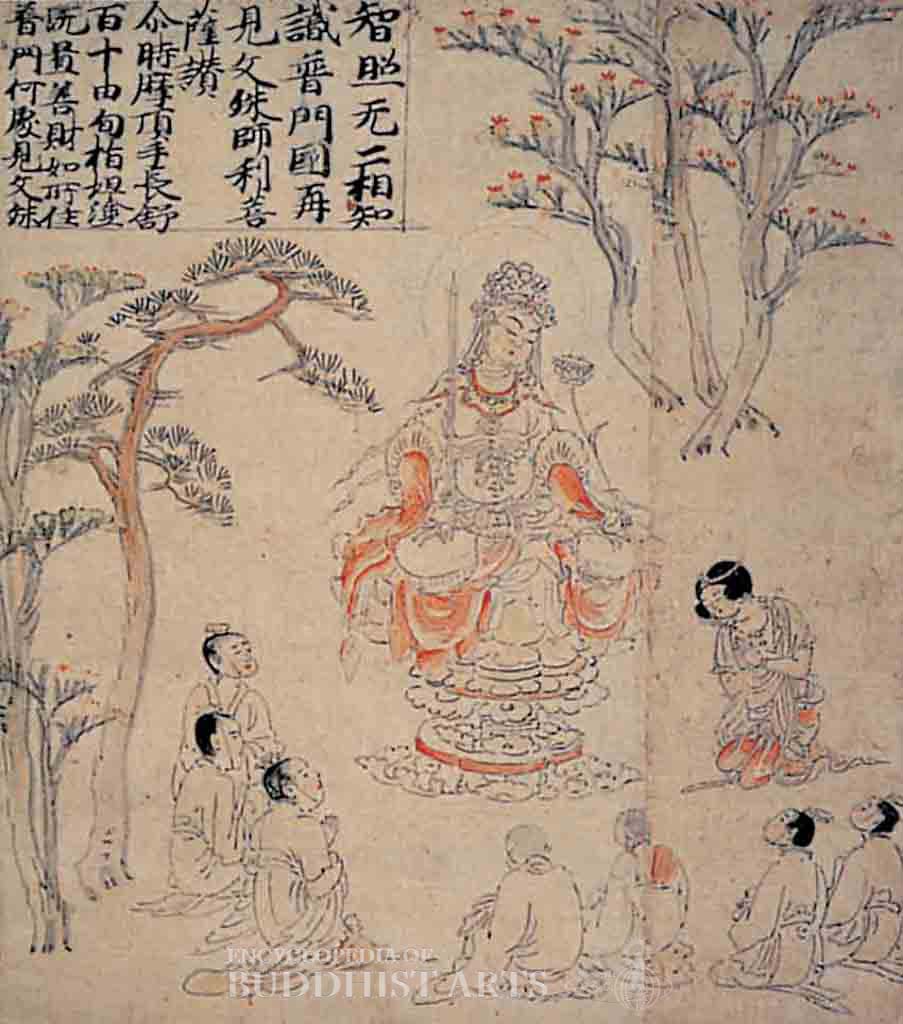 智照无二相知
識普門國再
見文殊師利菩
薩讃
尒時摩頂手長舒
百十由旬
善財如所住
普門何處見文殊
ENCYCLOPEDIA OF
BUDDHIST ARTS